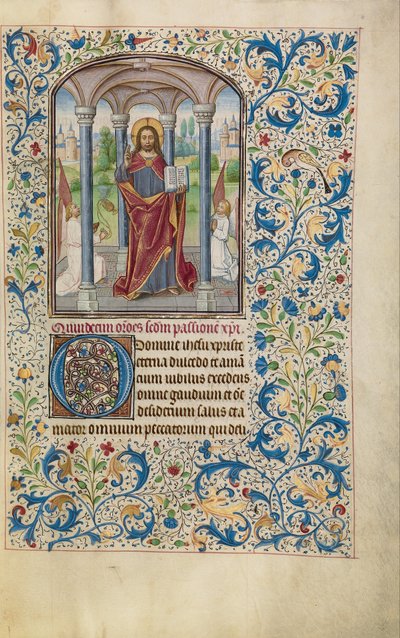 Quindecim orões scđm passione xp̃i
O Domine ihesu xpriste
eterna dulcedo et amã
cium iubilus excedens
omne gaudium et oẽ
desiderium salus et a
mator omnium peccatorum qui deli